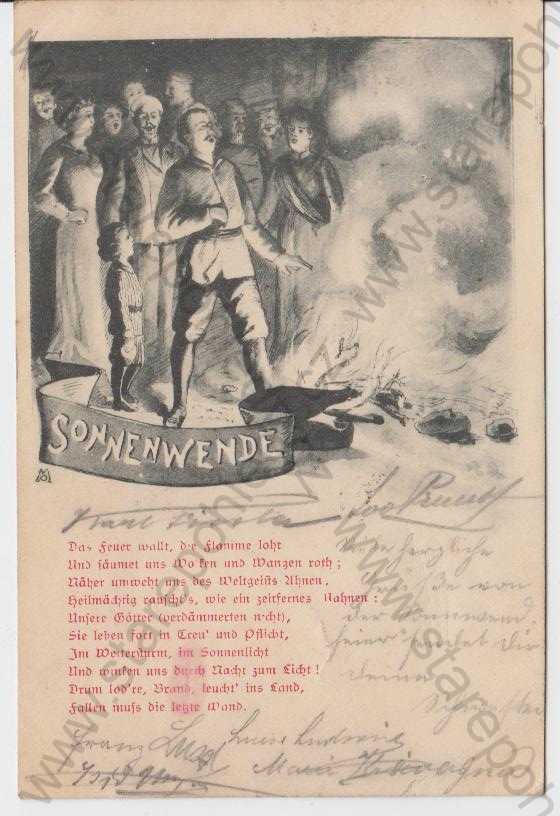 SONNENWENDE
Das Feuer wallt, die Flamme loht
Und säumet uns Wolken und Wangen roth;
Näher umweht uns des Weltgeists Ahnen,
Heilmächtig rauscht's, wie ein zeitfernes Nahnen:
Unsere Götter (verdämmerten nicht),
Sie leben fort in Treu' und Pflicht,
Im Wettersturm, im Sonnenlicht
Und winken uns durch Nacht zum Licht!
Drum lod're, Brand, leucht' ins Land,
Fallen muss die letzte Wand.
Viele herzliche
Grüße von
der Sonnwend-
feier sendet Dir
Deine
Schwester
Franz
Luise Ludwig
Marie
www.starepohlednice.cz